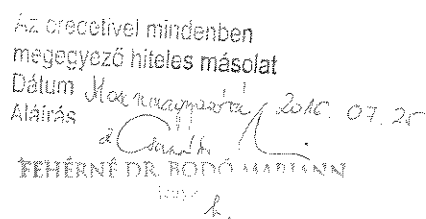 Az eredetivel mindenben
megegyező hiteles másolat
Dátum 2016. 07. 25
Aláírás
FEHÉRNÉ DR. BODÓ MARIANN